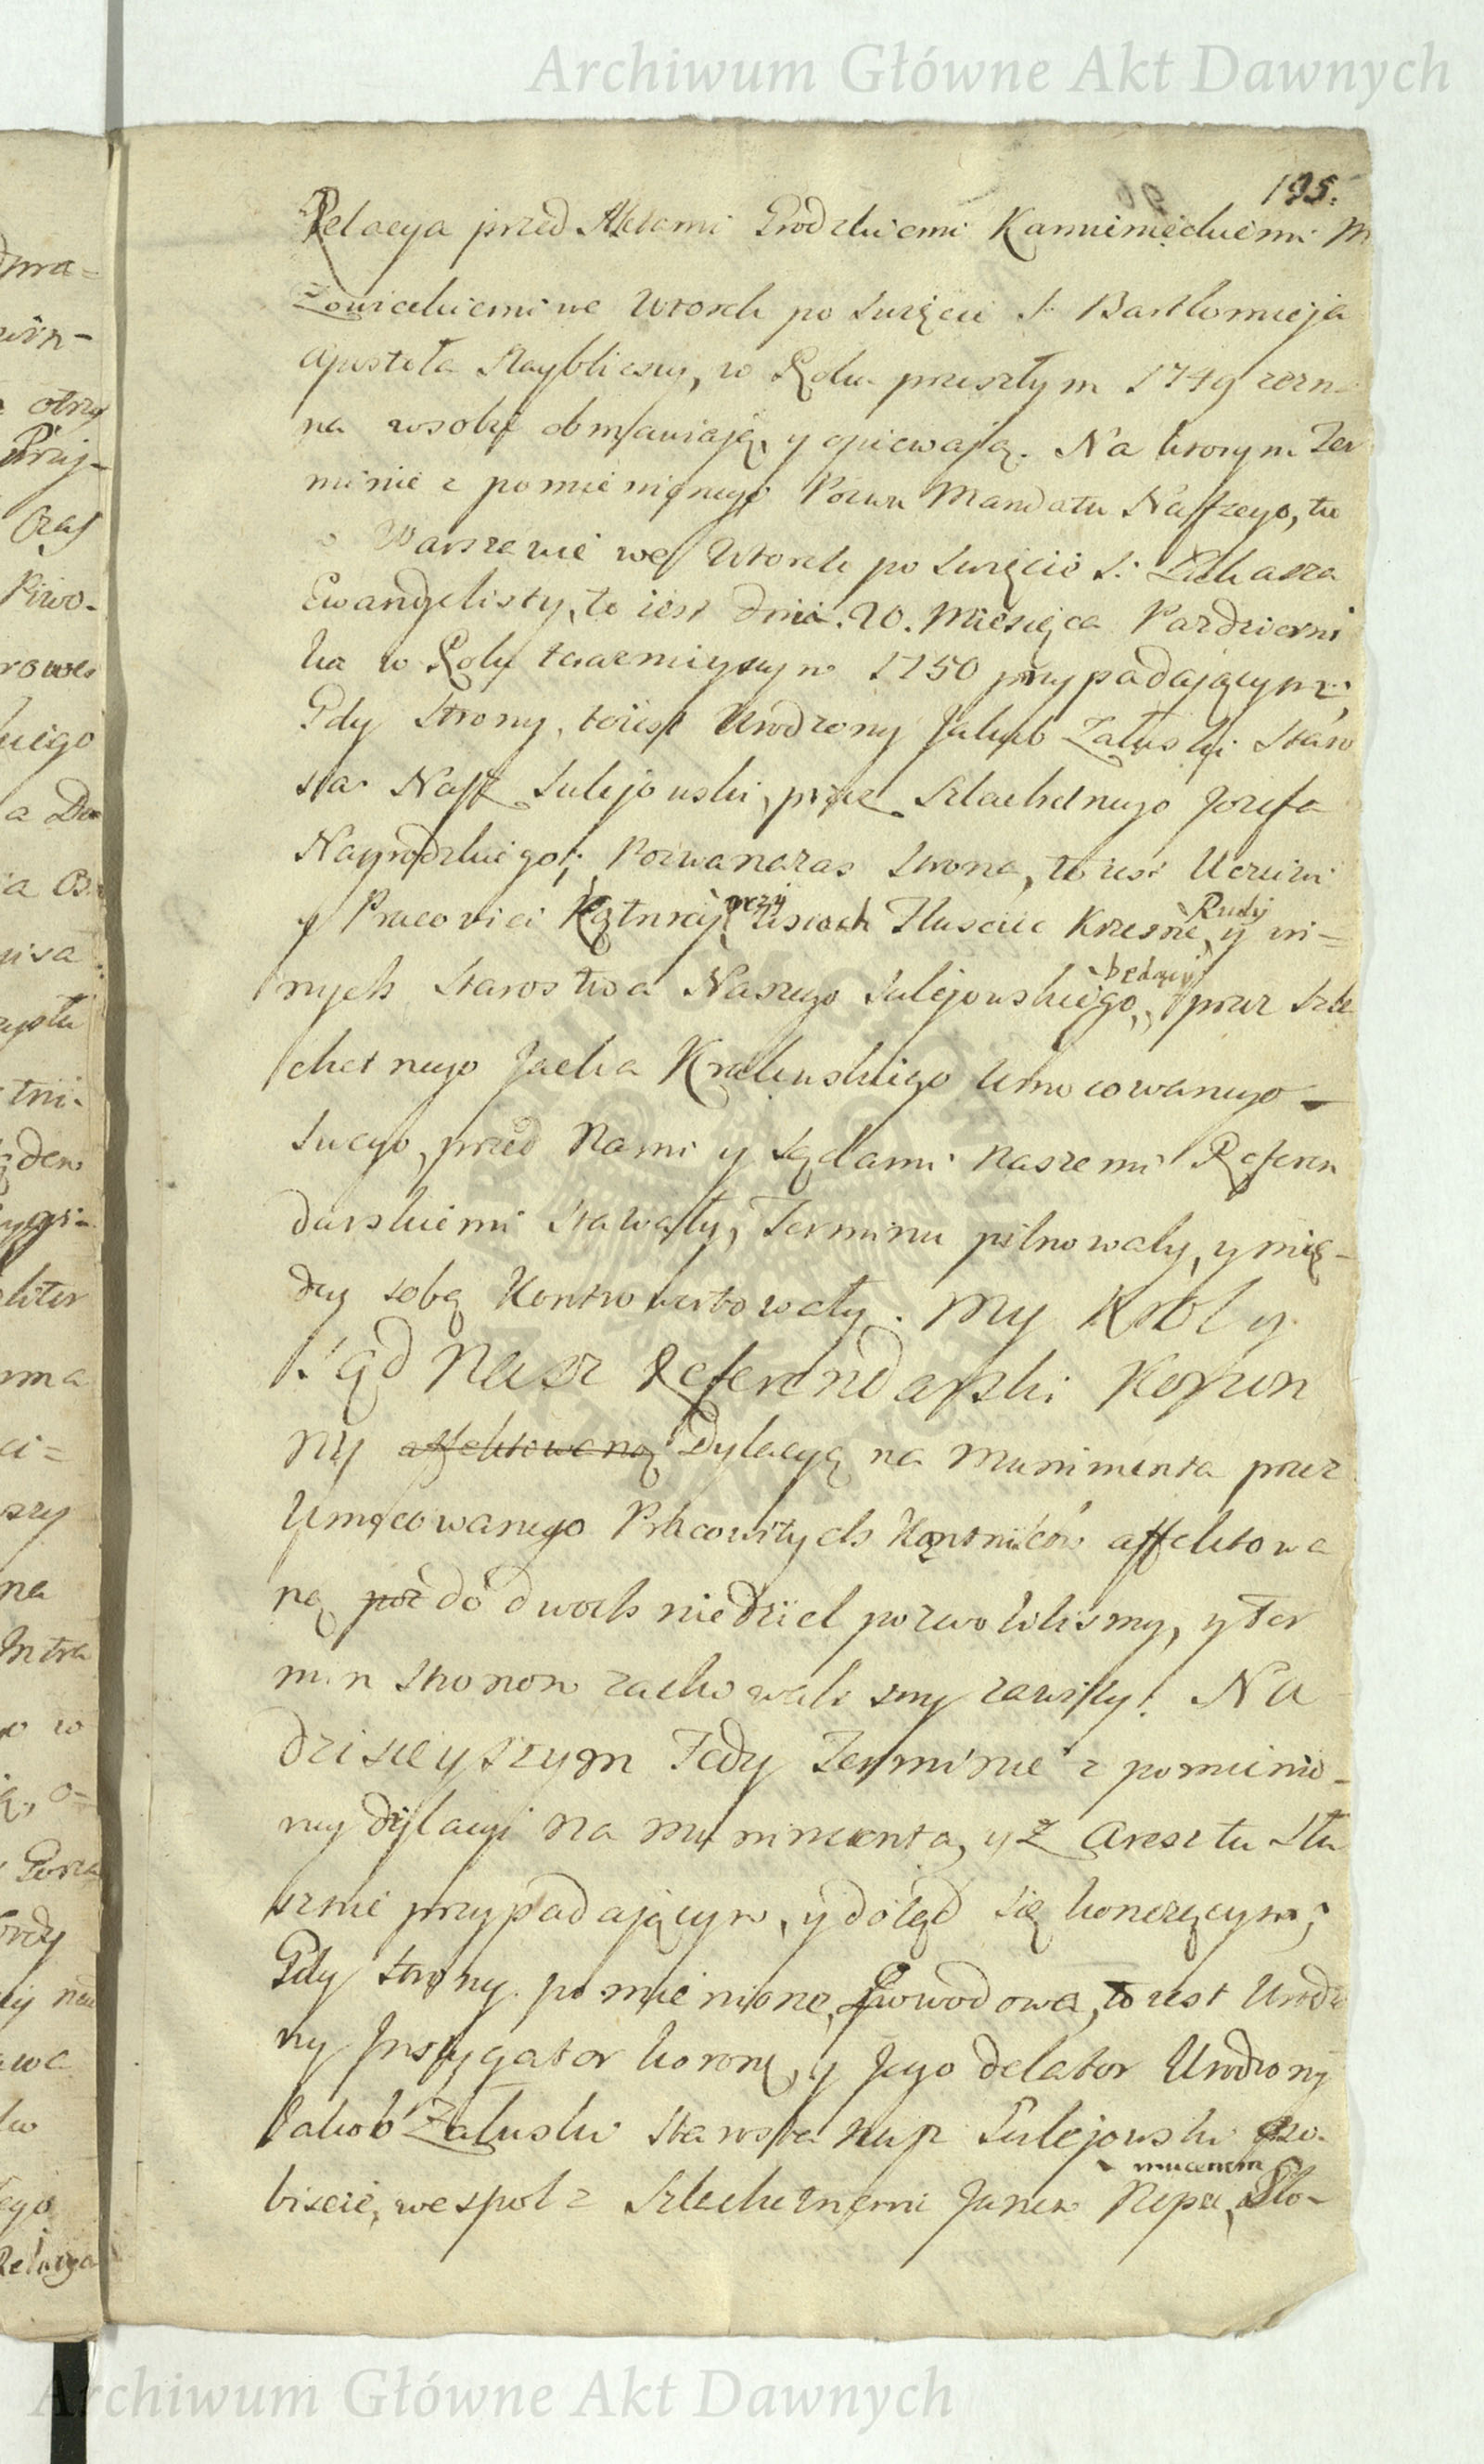 Archiwum Główne Akt Dawnych
195.
Relacya przed Aktami Grodzkiemi Kamienieckiemi M
zowieckiemi we Wtorek po Święcie S: Bartłomieja
Apostoła Naybliższy, w Roku przeszłym 1749 zezn
na w sobie obmawiają y opiewają. Na ktorym Ter
minie z pomienionego Pozwu Mandatu Naszego, tu
w Warszawie we Wtorek po Święcie S: Łukasza
Ewangelisty, to iest dnia 20. Miesięca Pazdzierni
ka w Roku teraznieyszym 1750 przypadającym;
Gdy Strony, to iest Urodzony Jakub Załuski Staro
sta Nasz Sulejowski, przez Szlachetnego Jozefa
Nagrodzkiego; Pozwana zas Strona, to iest Uczciwi
y Pracowici Kątnicy przy Wsiach Tłusciec Krzesne, Rudy y in=
nych Starostwa Naszego Sulejowskiego, będący przez Szla
chetnego Jacka Krakuskiego Umocowanego
Swego, przed Nami y Sądami Naszemi Referen
darskiemi Stawały, Terminu pilnowały, y mię=
dzy sobą Kontrowertowały. My Krol y
Sąd Nasz Referendarski Koron
ny affektowaną Dylacyą na Munimenta przez
Umocowanego Pracowitych Kątników affektowa
ną do dwoch niedziel pozwoliliśmy, y Ter
min Stronom zachowaliśmy zawity. Na
dzisieyszym Tedy Terminie z pomienio=
ney dylacyi na munimenta, y z Aresztu Słu
sznie przypadającym, y dotąd się kończącym;
Gdy Strony pomienione, Powodowa, to iest Urodzo
ny Instygator koronny, y Jego delator Urodzony
Jakob Załuski Starosta nasz Sulejowski oso=
biscie, wespoł z Szlachetnemi Janem Nepu mucenem Sło=
Archiwum Główne Akt Dawnych